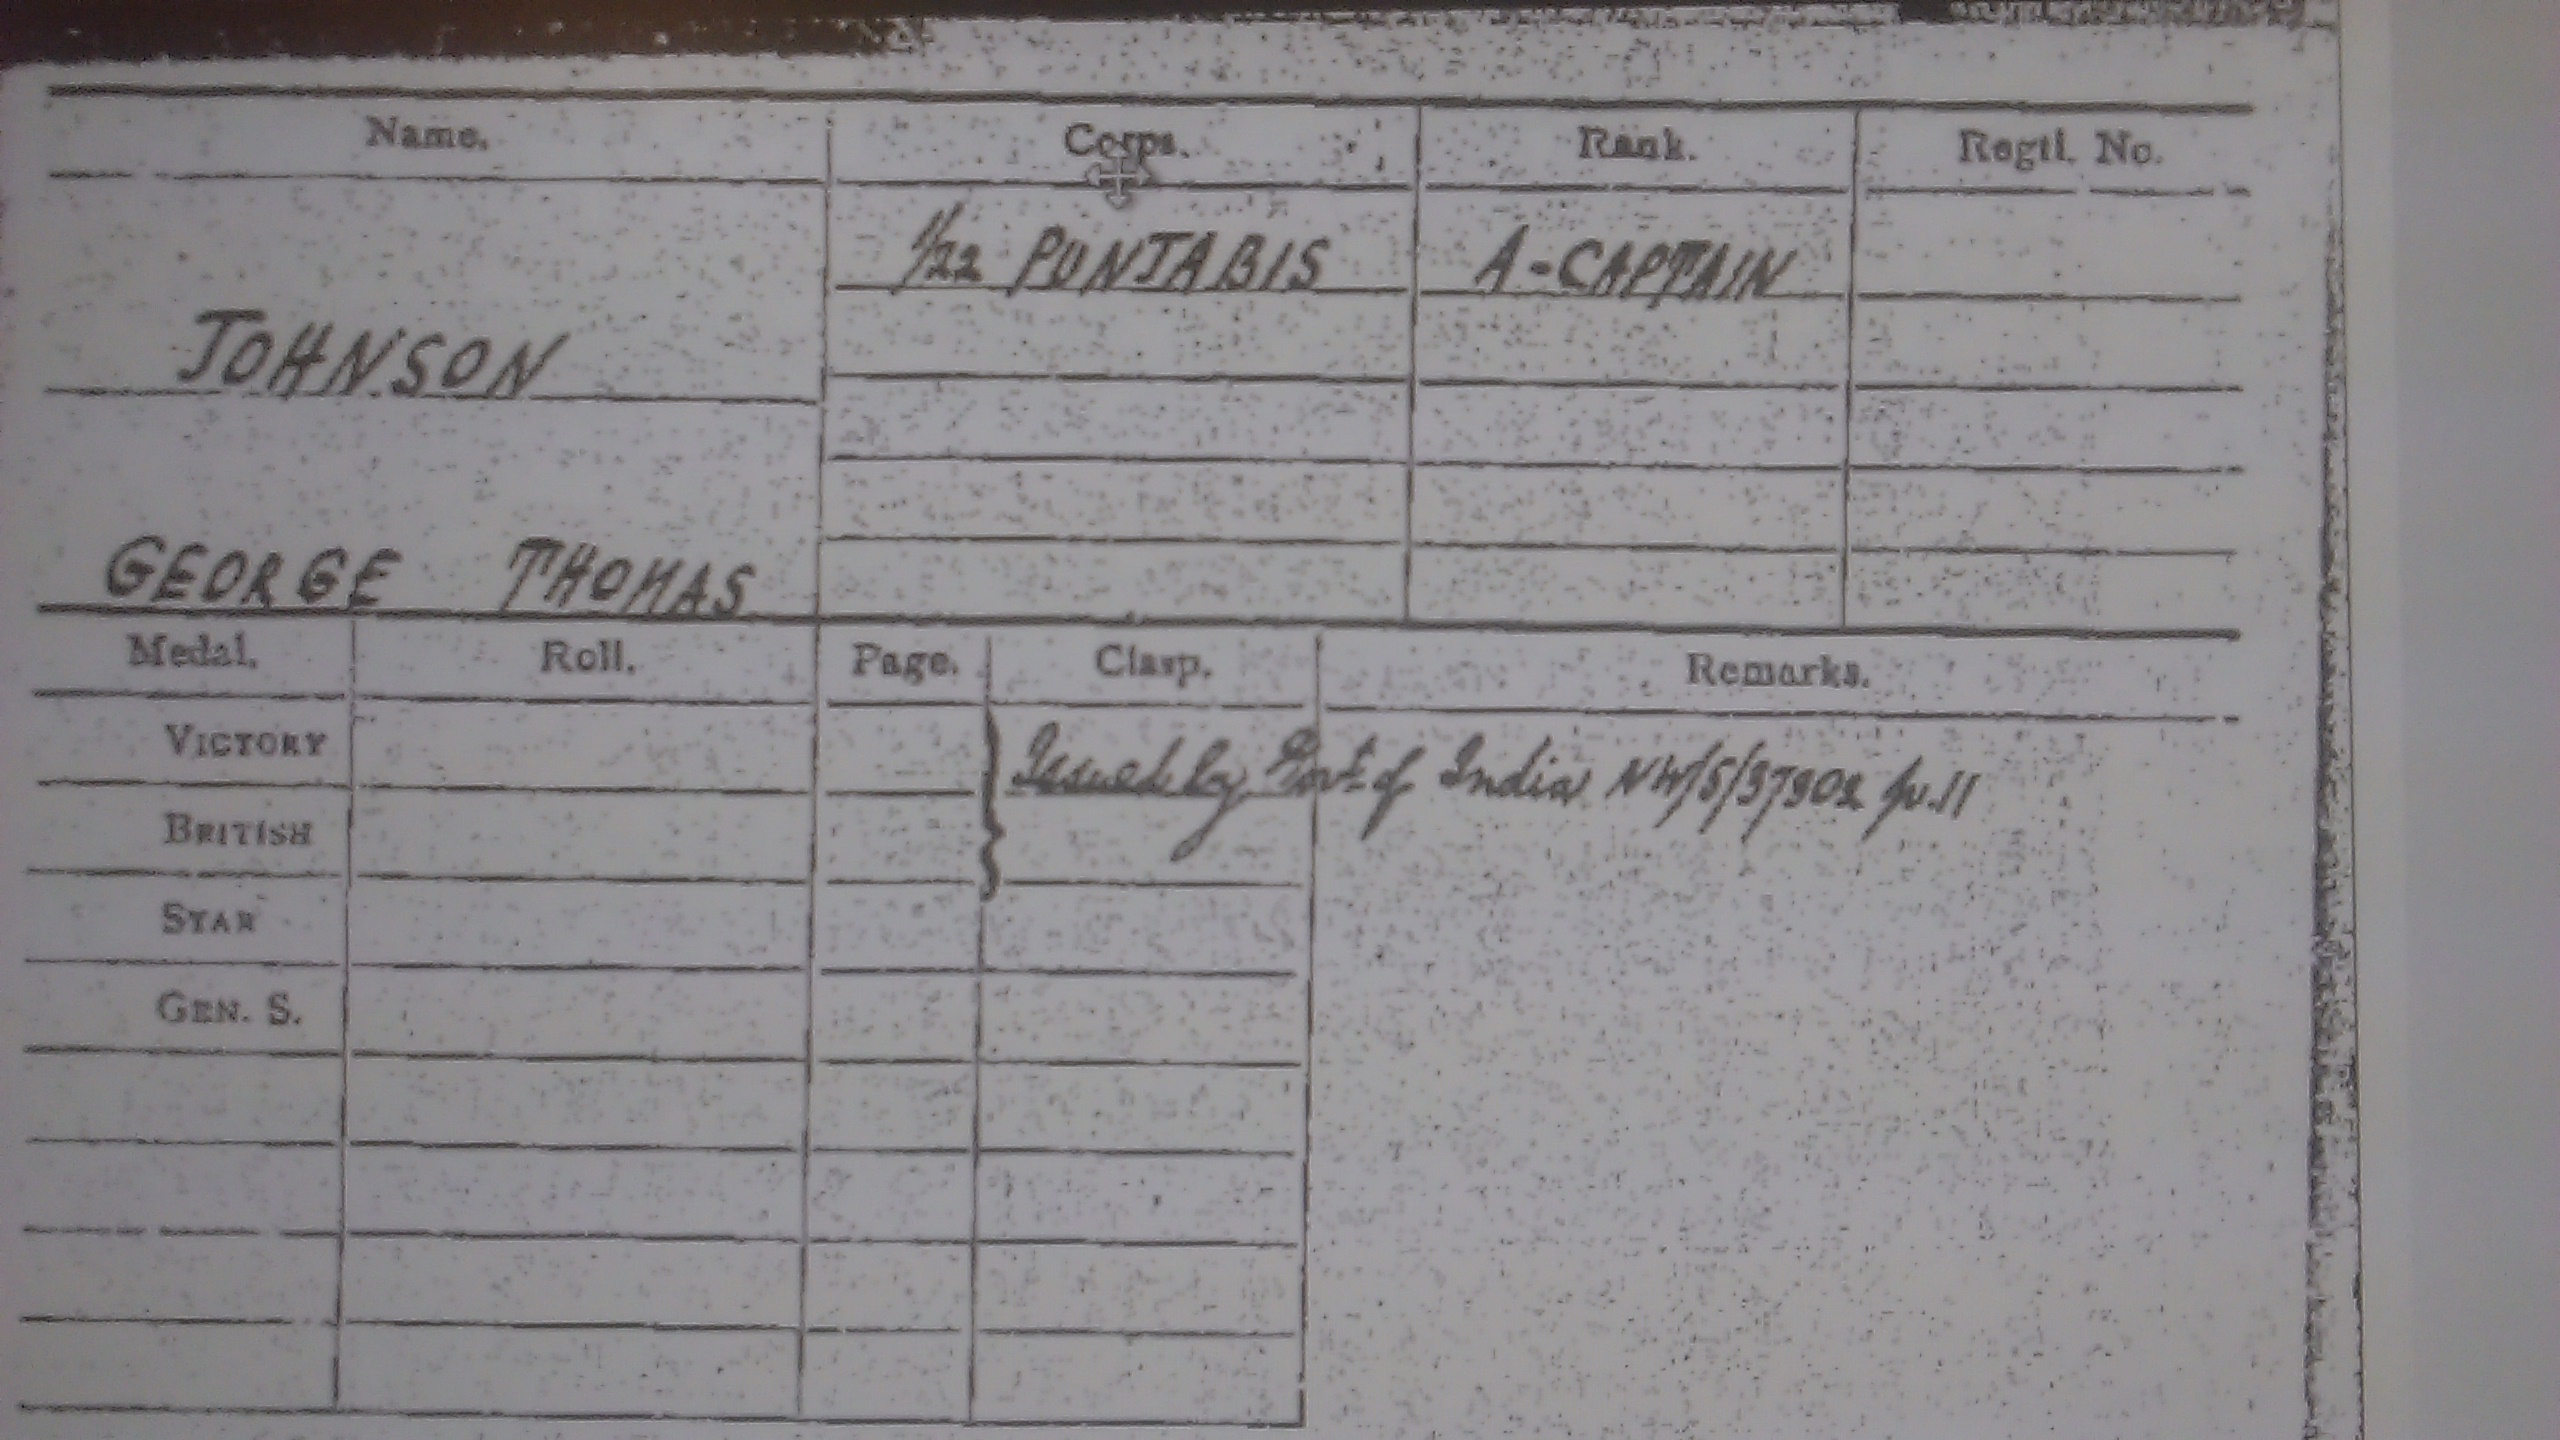 Name. Corps. Rank. Regtl. No.
1/22 PUNJABIS A-CAPTAIN
JOHNSON
GEORGE THOMAS
Medal. Roll. Page. Clasp. Remarks.
VICTORY
Issued by Govt. of India NW/5/37902
BRITISH
STAR
GEN. S.